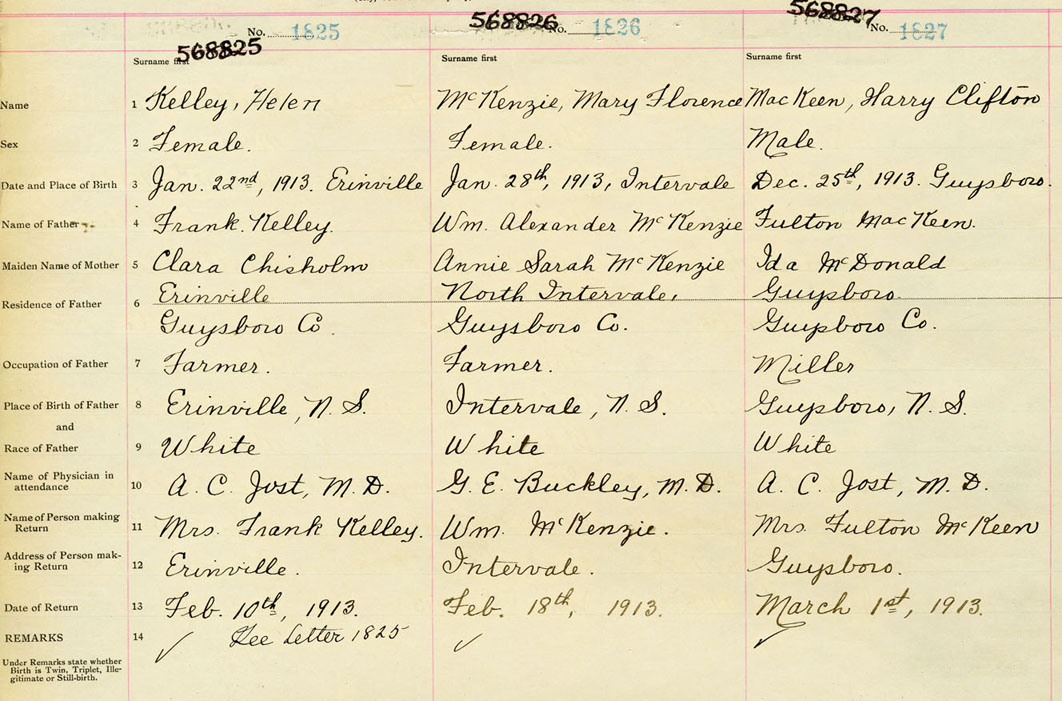 568825 No. 1825 568826 No. 1826 568827 No. 1827
Surname first Surname first Surname first
Name 1 Kelley, Helen McKenzie, Mary Florence MacKeen, Harry Clifton
Sex 2 Female. Female. Male.
Date and Place of Birth 3 Jan. 22nd, 1913. Erinville Jan. 28th, 1913, Intervale Dec. 25th, 1913. Guysboro.
Name of Father 4 Frank. Kelley. Wm. Alexander McKenzie Fulton MacKeen.
Maiden Name of Mother 5 Clara Chisholm Annie Sarah McKenzie Ida McDonald
Residence of Father 6 Erinville North Intervale, Guysboro.
Guysboro Co. Guysboro Co. Guysboro Co.
Occupation of Father 7 Farmer. Farmer. Miller
Place of Birth of Father 8 Erinville, N.S. Intervale, N.S. Guysboro, N.S.
and
Race of Father 9 White White White
Name of Physician in attendance 10 A. C. Jost, M.D. G. E. Buckley, M.D. A. C. Jost, M.D.
Name of Person making Return 11 Mrs. Frank Kelley. Wm. McKenzie. Mrs. Fulton McKeen
Address of Person mak-
ing Return 12 Erinville. Intervale. Guysboro.
Date of Return 13 Feb. 10th, 1913. Feb. 18th, 1913. March 1st, 1913.
REMARKS 14 ✓ See Letter 1825 ✓ ✓
Under Remarks state whether
Birth is Twin, Triplet, Ille-
gitimate or Still-birth.